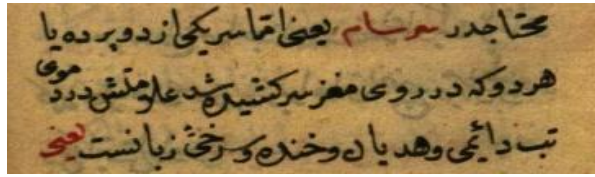 محتاجدر سرسام یعنی اماسریکی از دو پرده یا
هر دو که در روی مغز سر کشیده شد علامتش درد موی
تب دائمی و هدیان و خنده و سرخی زبانست یعنی